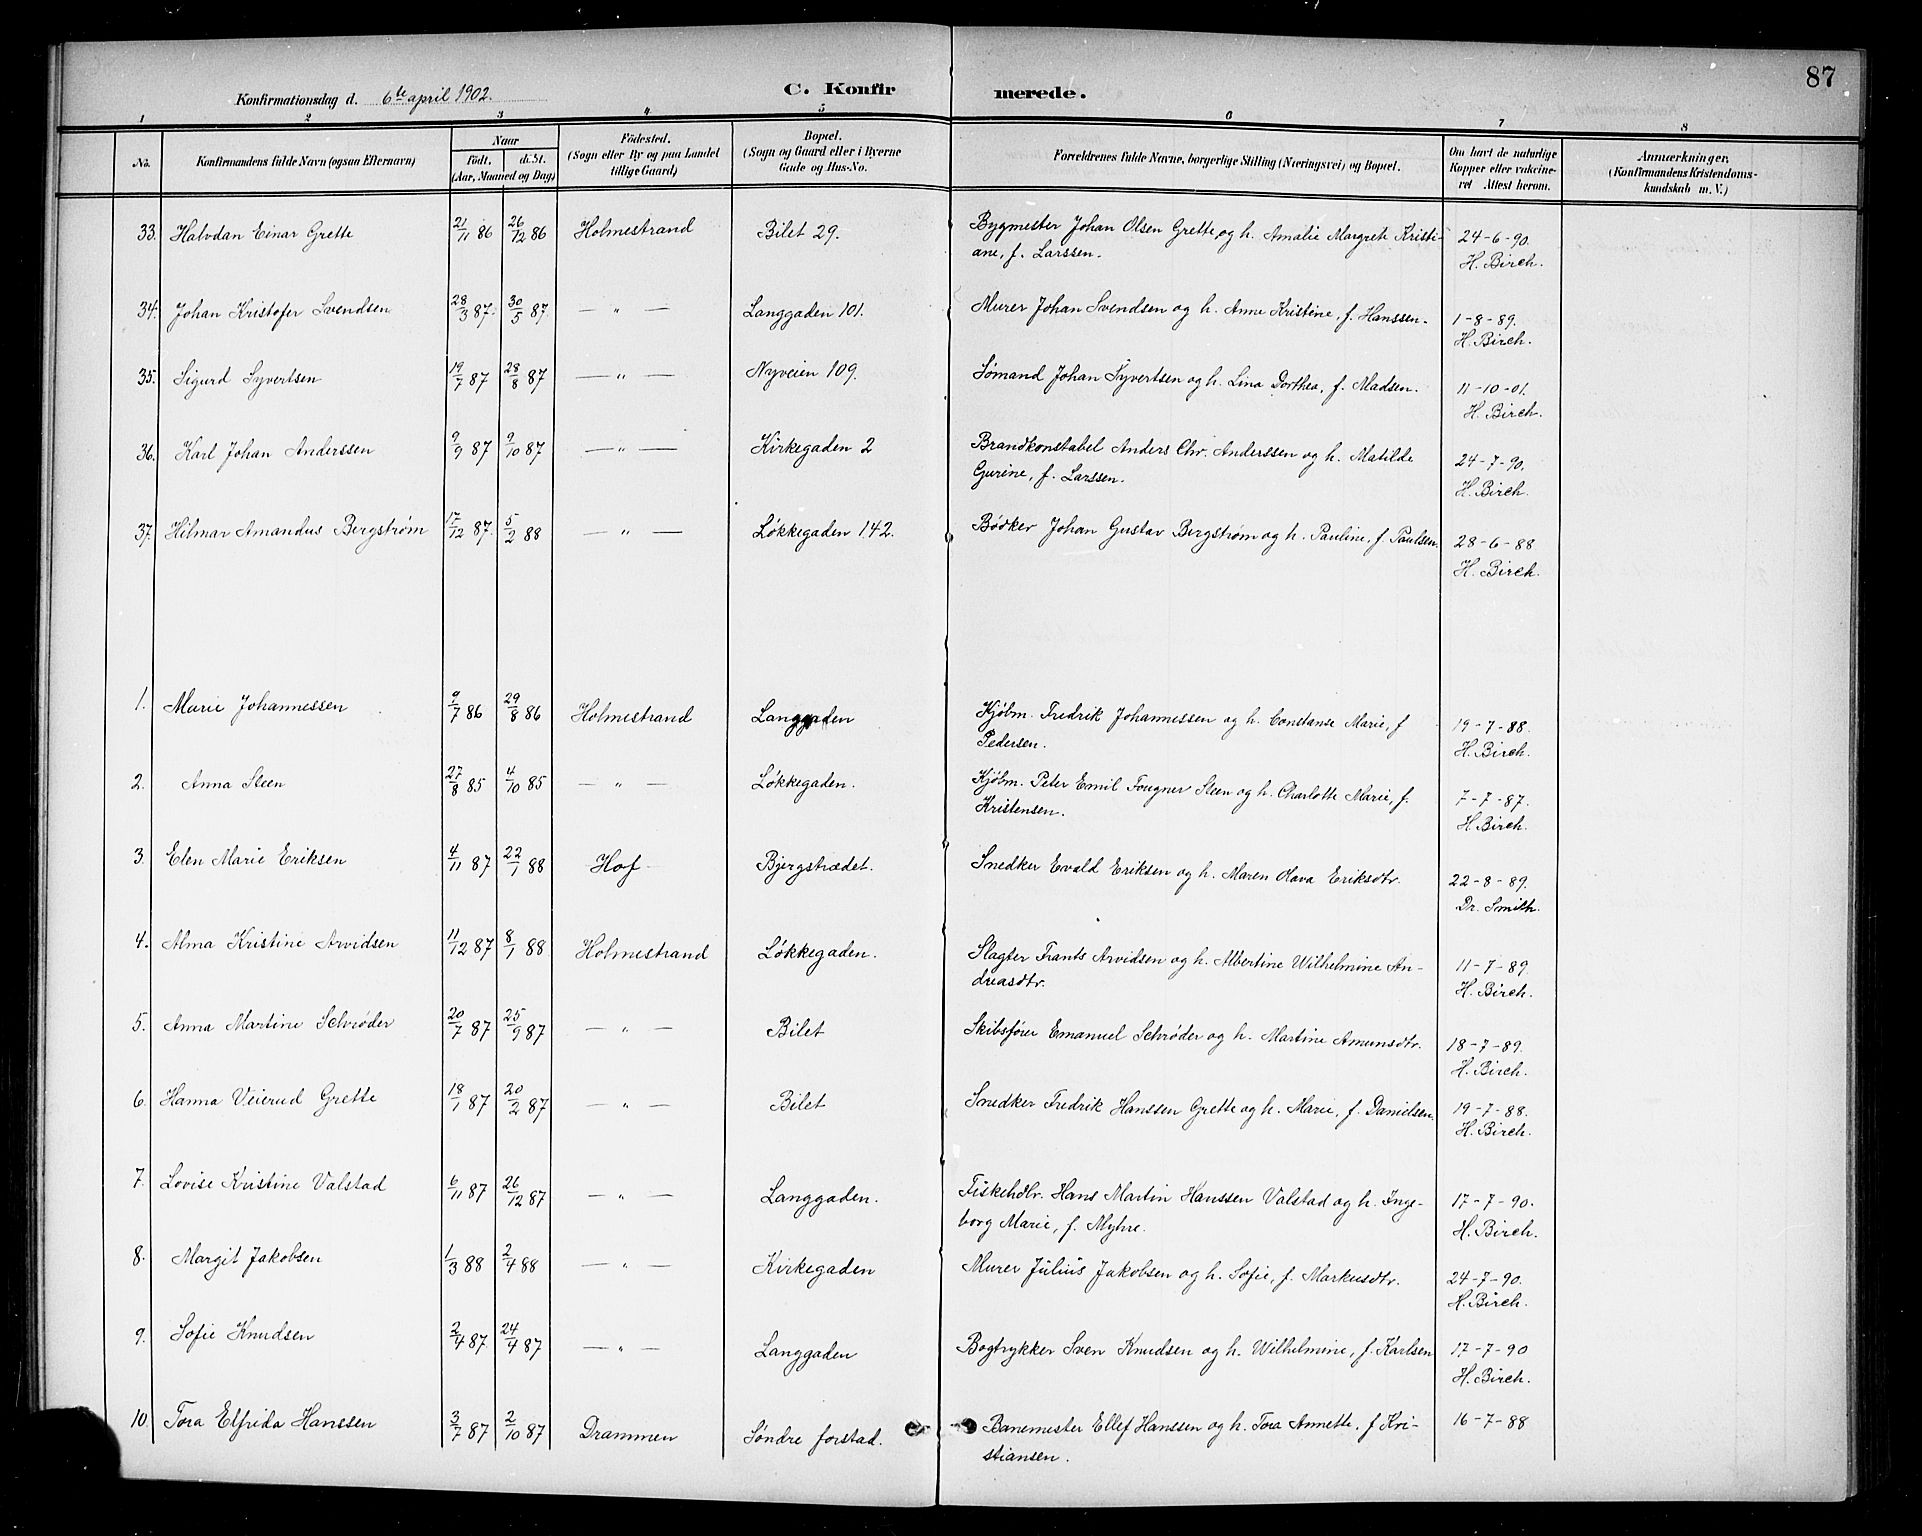 87
Konfirmationsdag d. 6te april 1902.
C. Konfirmerede.
1 2 3 4 5 6 7 8
No.
Konfirmandens fulde Navn (ogsaa Efternavn)
Naar
Födt. döbt.
(Aar, Maaned og Dag)
Födested.
(Sogn eller By og paa Landet
tillige Gaard)
Bopæl.
(Sogn og Gaard eller i Byerne
Gade og Hus-No.
Forældrenes fulde Navne, borgerlige Stilling (Næringsvei) og Bopæl.
Om havt de naturlige
Kopper eller vakcine-
ret Attest herom.
Anmærkninger.
(Konfirmandens Kristendoms-
kundskab m. V.)
33. Halvdan Einar Grette 21/11 86 26/12 86 Holmestrand Bilet 29. Bygmester Johan Olsen Grette og h. Amalie Margreth Kristi- 24-6-90.
ane, f. Larssen. H. Birch.
34. Johan Kristofer Svendsen 28/3 87. 30/5 87. — „ — Langgaden 101. Murer Johan Svendsen og h. Anne Kristine, f. Hanssen. 1-8-89.
H. Birch.
35. Sigurd Syvertsen 19/7 87 28/8 87 — „ — Nyveien 109. Sømand Johan Syvertsen og h. Lina Dorthea, f. Madsen. 11-10-01.
H. Birch.
36. Karl Johan Anderssen 9/9 87 9/10 87 — „ — Kirkegaden 2 Brandkonstabel Anders Chr. Anderssen og h. Matilde 24-7-90.
Gurine, f. Larssen. H. Birch.
37. Hilmar Amandus Bergstrøm 17/12 87. 5/2 88 — „ — Løkkegaden 142. Bødker Johan Gustav Bergstrøm og h. Pauline, f. Paulsen. 28-6-88
H. Birch.
1. Marie Johannessen 9/7 86 29/8 86 Holmestrand Langgaden Kjøbm. Fredrik Johannessen og h. Constanse Marie, f 19-7-88.
Pedersen. H. Birch.
2. Anna Steen 27/8 85 4/10 85 — „ — Løkkegaden. Kjøbm. Peter Emil Fougner Steen og h. Charlotte Marie, f. 7-7-87.
Kristensen. H. Birch.
3. Elen Marie Eriksen 4/11 87 22/1 88 Hof Bjergstrædet. Snedker Evald Eriksen og h. Maren Olava Eriksdtr. 22-8-89.
Dr. Smith.
4. Alma Kristine Arvidsen 11/12 87 8/1 88 Holmestrand Løkkegaden. Slagter Frants Arvidsen og h. Albertine Wilhelmine An- 11-7-89.
dreasdtr. H. Birch.
5. Anna Martine Schrøder 20/7 87 25/9 87 — „ — Bilet Skibsfører Emanuel Schrøder og h. Martine Amunsdtr. 18-7-89.
H. Birch.
6. Hanna Veierud Grette 18/1 87 20/2 87 — „ — Bilet Snedker Fredrik Hanssen Grette og h. Marie, f. Danielsen. 19-7-88.
H. Birch.
7. Lovise Kristine Valstad 6/11 87 26/12 87 — „ — Langgaden. Fiskehdlr. Hans Martin Hanssen Valstad og h. Inge- 17-7-90.
borg Marie, f. Myhre. H. Birch.
8. Margit Jakobsen 1/3 88 2/4 88 — „ — Kirkegaden Murer Julius Jakobsen og h. Sofie, f. Markusdtr. 24-7-90.
H. Birch.
9. Sofie Knudsen 2/4 87. 24/4 87 — „ — Langgaden Bogtrykker Sven Knudsen og h. Wilhelmine, f. Karlsen 17-7-90
H. Birch.
10 Tora Elfrida Hanssen 3/7 87 2/10 87 Drammen Søndre forstad. Banemester Ellef Hanssen og h. Tora Annette, f Kri- 16-7-88
stiansen.